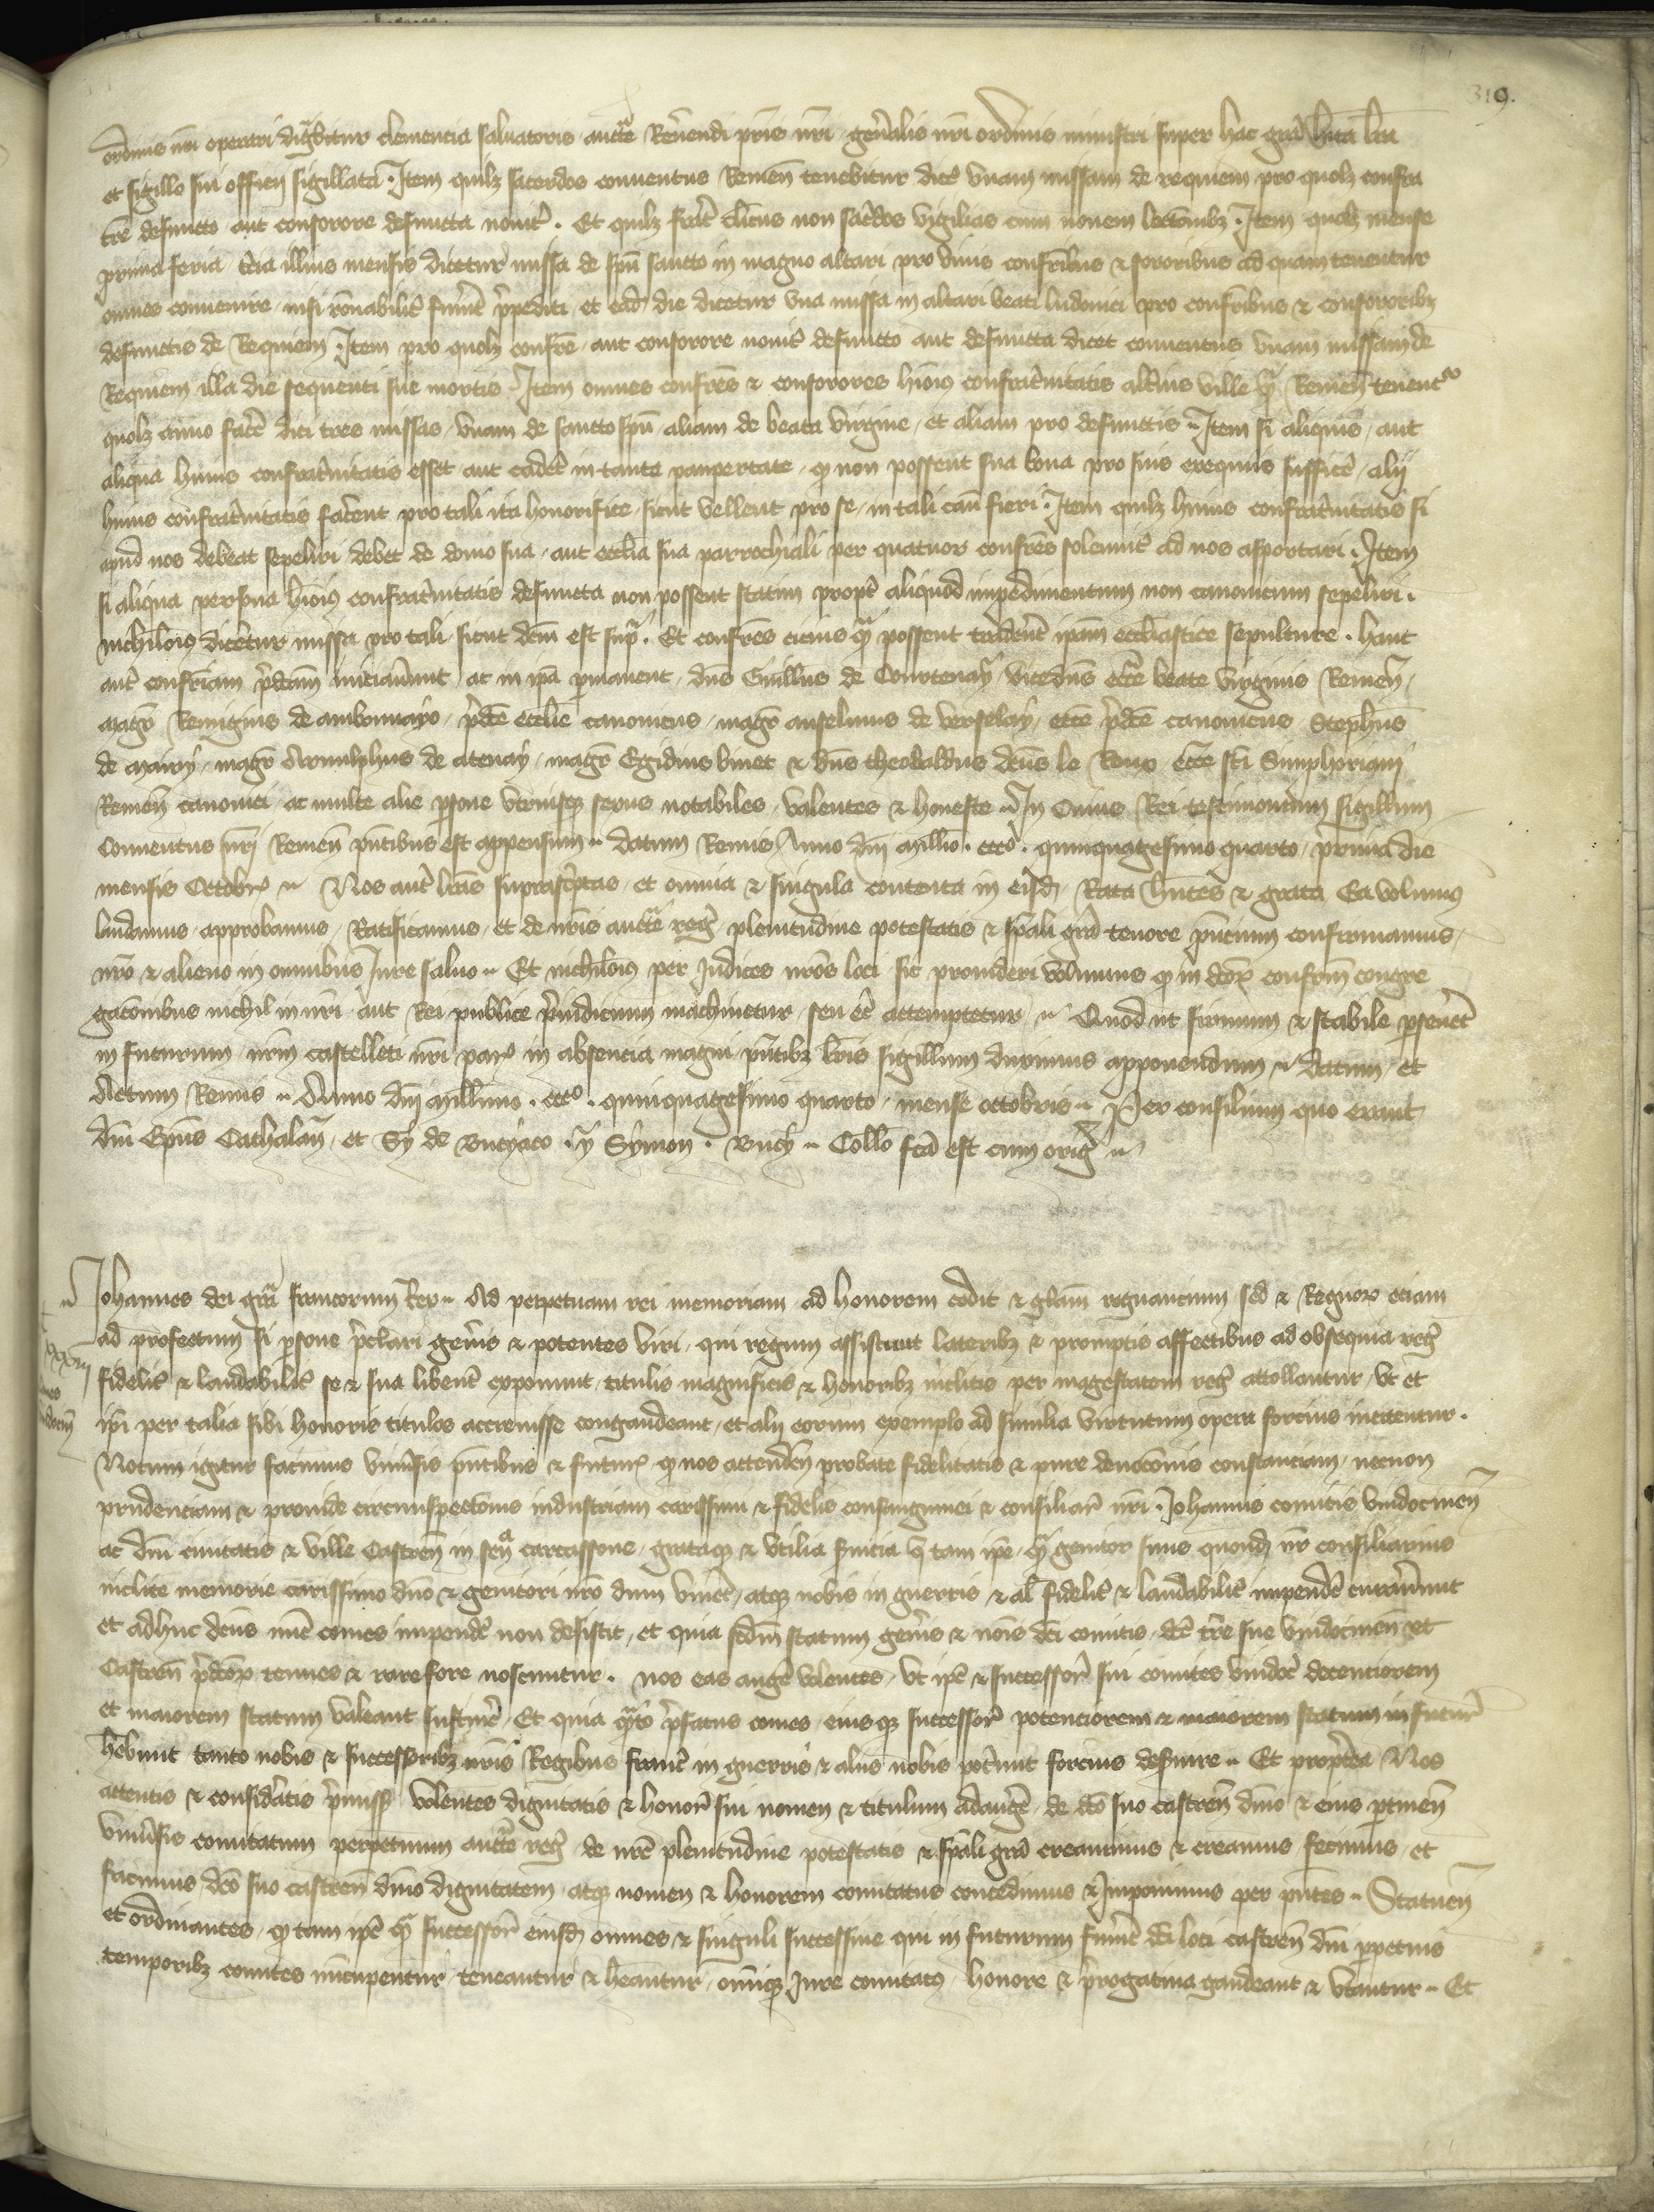 319.
ordinis nri operari dignabitur clemencia saluatoris auctte Reuerendi pris nri genalis nri ordinis ministri super hac gra hita lra
et sigillo sui officij sigillata . Item quilz sacerdos conuentus Remen tenebitur dice vnam missam de requiem pro quolz confra
tre defuncto aut consorore defuncta nouit . Et quilz frat clicus non sacdos vigilias cum nouem lectonibz . Item quolz mense
prima feria tcia illius mensis dicetur missa de spu sancto in magno altari pro viuis confribus & sororibus ad quam tenentur
omnes conuenire nisi ronabilit fuint ppediti et eadem die dicetur vna missa in altari beati ludouici pro confribus & consororibz
defunctis de Requiem Item pro quolz confre aut consorore nouit defuncto aut defuncta dicet conuentus vnam missam de
Requiem illa die sequenti sue mortis . Item omnes confres & consorores hiois confratnitatis altius ville qm Remen tenent
quolz anno face dici tres missas vnam de sancto spu aliam de beata virgine et aliam pro defunctis . Item si aliquis aut
aliqua huius confratnitatis esset aut cadet in tanta paupertate q non possent sua bona pro suis exequiis suffice alij
huius confratnitatis facent pro tali ita honorifice sicut vellent pro se in tali casu fieri . Item quilz huius confratnitatis si
apud nos debeat sepeliri debet de domo sua aut ecclia sua parrochiali per quatuor confres solennit ad nos asportari . Item
si aliqua persona hiois confratnitatis defuncta non possent statim propt aliquod impedimentum non canonicum sepeliri .
nichilois dicetur missa pro tali sicut dcm est supra . Et confres cicius qm possent tradent ipam ecclesiastice sepulture . hanc
aut confriam pdcam iniciauunt ac in ipa pmanent dns Guillus de Courtenay vicedns ecce beate virginis Remen
magr Remigius de ambonnayo pdce ecclie canonicus magr anselmus de verselay ecce pdce canonicus Stephus
de mairy magr Arnulphus de atenay magr Egidius binet & dns theobaldus dcus le Roux ecce sci Simphoriani
Remen canonici ac multe alie psone vtriusq sexus notabiles valentes & honeste . In Cuius Rei testimonium sigillum
Conuentus nri Remen pntibus est appensum . datum Remis Anno dni millio . ccc° . quinquagesimo quarto prima die
mensis Octobr . Nos aut lras suprascptas et omnia & singula contenta in eisd Rata hntes & grata Ea volumus
laudamus approbamus Ratificamus et de nris auctte reg plenitudine potestatis & spali gra tenore pncium confirmamus
nro & alieno in omnibus Iure saluo . Et nichilois per Iudices nros loci sic prouideri volumus q in dcor confrm congre
gatonibus nichil in nri aut Rei publice piudicium machinetur seu ec attemptetur . Quod ut firmum & stabile pseuet
in futurum nrm castelleti nri par in absencia magni pntibz lris sigillum duximus apponendum . datum et
Actum Remis . Anno dni millimo . ccc° . quinquagesimo quarto mense octobris . Per consilium quo erant
dni Epus Cathalan et Sy de Bucyaco . y Symon . Bucy . Collo fca est cum orig .
Iohannes dei gra francorum Rex . Ad perpetuam rei memoriam ad honorem cedit & gliam regnancium sed & Regnor eciam
ad profectum si psone pclari genis & potentes viri qui regum assistunt lateribz & promptis affectibus ad obsequia reg
fidelit & laudabilit se & sua libent exponunt titulis magnificis & honoribz inclitis per magestatem reg attollantur vt et
ipi per talia sibi honoris titulos accreuisse congaudeant et alij eorum exemplo ad similia virtutum opera forcius incitentur .
Notum igitur facimus vniuisis pntibus & futur q nos attenden probate fidelitatis & pure deuotonis constanciam necnon
prudenciam & prouide circunspectonis industriam carissimi & fidelis consanguinei & consiliar nri . Iohannis comitis vindocinen
ac dni ciuitatis & ville Castren in sena carcassone grataq & vtilia suicia q tam ipe qm genitor suus quond nr consiliarius
inclite memorie carissimo dno & genitori nro dum viuet atq nobis in guerris & al fidelit & laudabilit impende curauunt
et adhuc dcus nuc comes impende non desistit et quia scdm statum genis & nois dci comitis dce tre sue vindocinen et
Castren pdcor tenues & rare fore noscuntur . nos eas auge volentes vt ipe & successor sui comites vindoc decenciorem
et maiorem statum valeant sustinere Et quia qnto pfatus comes eiusq successor potenciorem & maiorem statum in futur
hebunt tanto nobis & successoribz nris Regibus franc in guerris & alias nobis potunt forcius desuire . Et proptea Nos
attentis & considatis pmiss volentes dignitatis & honor sui nomen & titulum adauge de dco suo castren dnio & eius ptinen
vniuisis comitatum perpetuum auctte reg de nre plenitudine potestatis & spali gra creauimus & creamus fecimus et
facimus dco suo castren dnio dignitatem atq nomen & honorem comitatus concedimus & Imponimus per pntes . Statuen
et ordinantes q tam ipe qm successor eiusd omnes & singuli successiue qui in futurum fuint dci loci castren dni ppetuis
temporibz comites nuncupentur teneantur & heantur omniq Iure comitatus honore & progatiua gaudeant & vtantur . Et